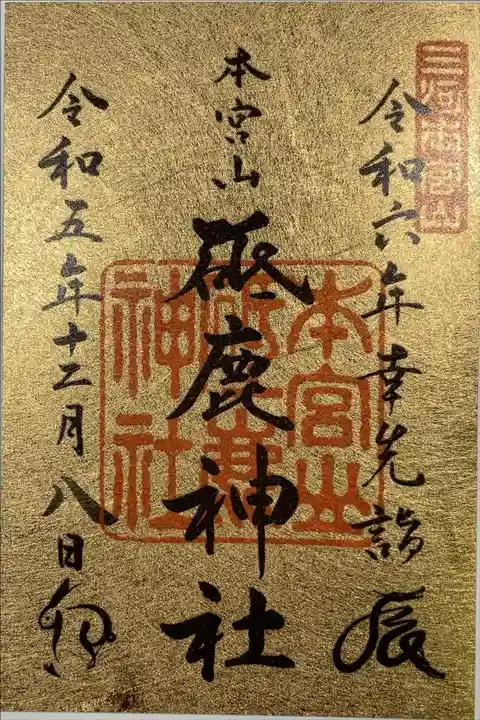 三河本宮山
令和六年幸先詣 辰
本宮山
砥鹿神社
令和五年十二月八日 卯
本宮山
砥鹿
神社